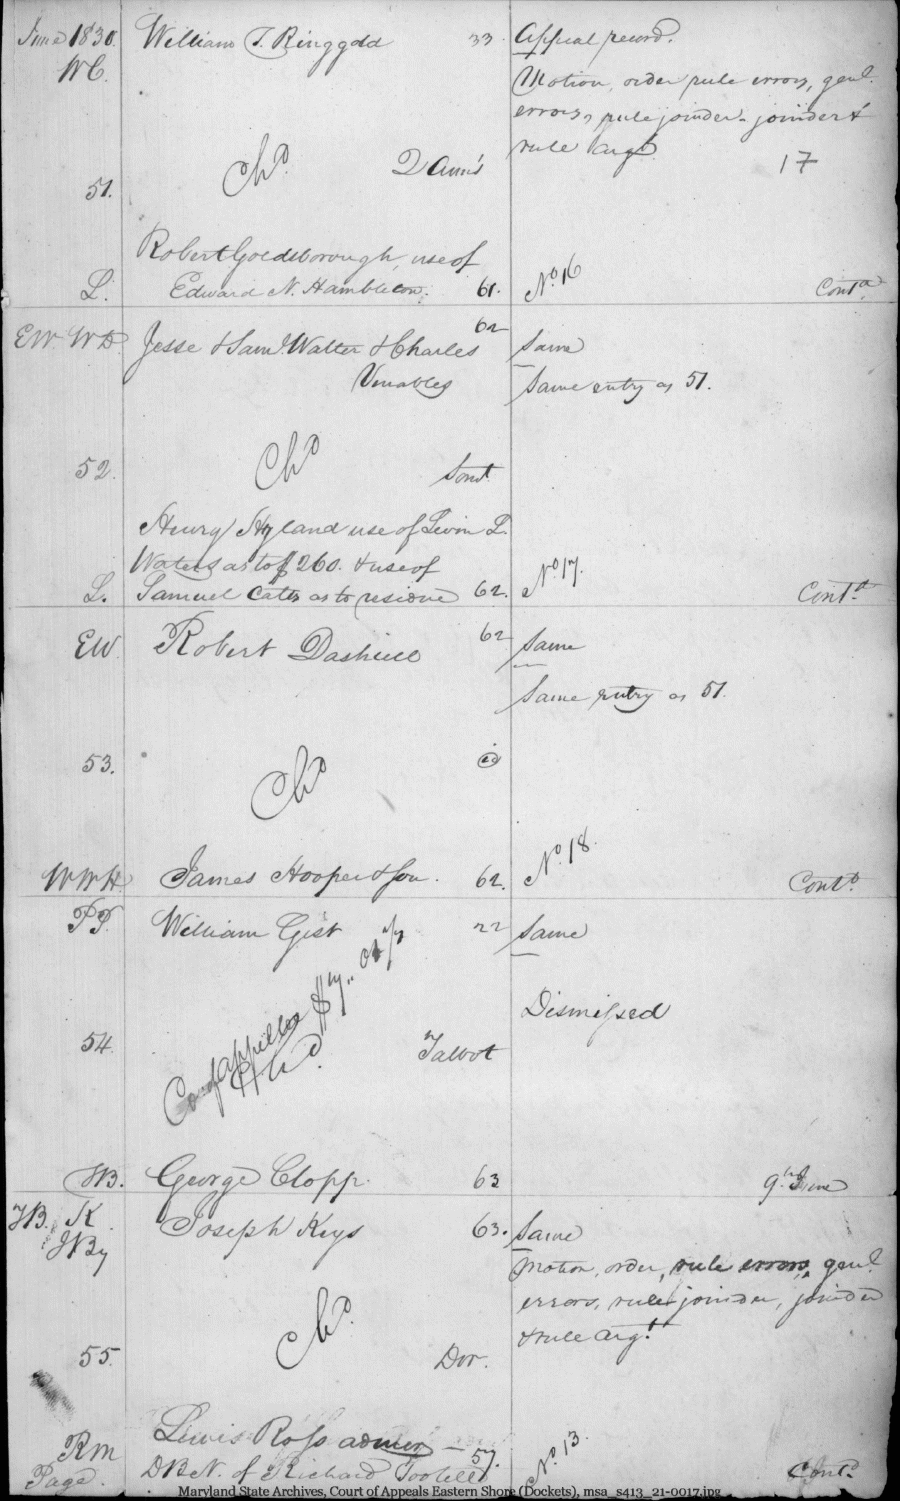 June 1830. William T. Ringgold 33 Appeal record.
WC. Motion, order rule errors, genl.
errors, rule joinder - joinder &
rule argt.
17
Chd. Q Ann's
51.
Robert Goldsborough, use of
L. Edward N. Hambleton. 61. No. 16 Contd.
EW WD Jesse & Saml. Walter & Charles 62 Same
Venables Same entry as 51.
52. Chd Somt.
Henry Hyland use of Levin L.
Waters as to $260. & use of
L. Samuel Cates as to residue 62. No. 17. Contd.
EW Robert Dashiell 62 Same
Same entry as 51.
53. Chd id
WWH James Hooper & Son. 62. No. 18. Contd.
William Gist 22 Same
Dismissed
54. Chd. Talbot
George Clopp. 63 9th June
JB. K Joseph Keys 63. Same
Motion, order, rule errors, genl.
errors, rule joinder, joinder
& rule argt.
55. Chd. Dor.
RM Lewis Ross admor 57. No. 13.
Page. DBN. of Richard Tootell Contd.
Maryland State Archives, Court of Appeals Eastern Shore (Dockets), msa_s413_21-0017.jpg